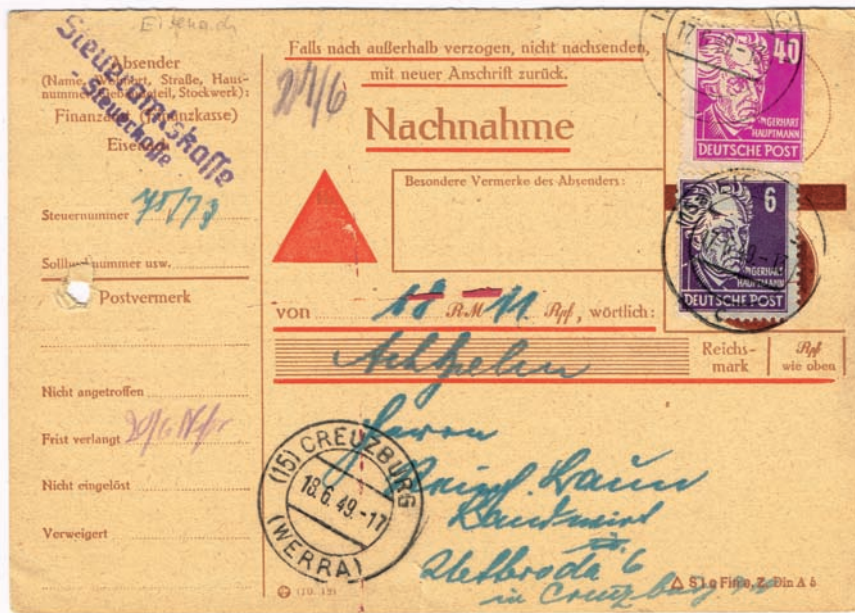 Eisenach
Steueramtskasse
- Steuerkasse
Absender
(Name, Wohnort, Straße, Haus-
nummer, Gebäudeteil, Stockwerk):
Finanzamt (Finanzkasse)
Eisenach
Steuernummer 75/73
Sollbuchnummer usw.
Postvermerk
Nicht angetroffen
Frist verlangt 20/6
Nicht eingelöst
Verweigert
Falls nach außerhalb verzogen, nicht nachsenden,
mit neuer Anschrift zurück.
Nachnahme
Besondere Vermerke des Absenders:
von 18 RM 11 Rpf, wörtlich:
Achtzehn
Reichs-
mark
Rpf
wie oben
Herrn
Landwirt
in Creuzburg
40
GERHART
HAUPTMANN
DEUTSCHE POST
6
GERHART
HAUPTMANN
DEUTSCHE POST
(15) CREUZBURG
18.6.49.-17
(WERRA)
Din A 6